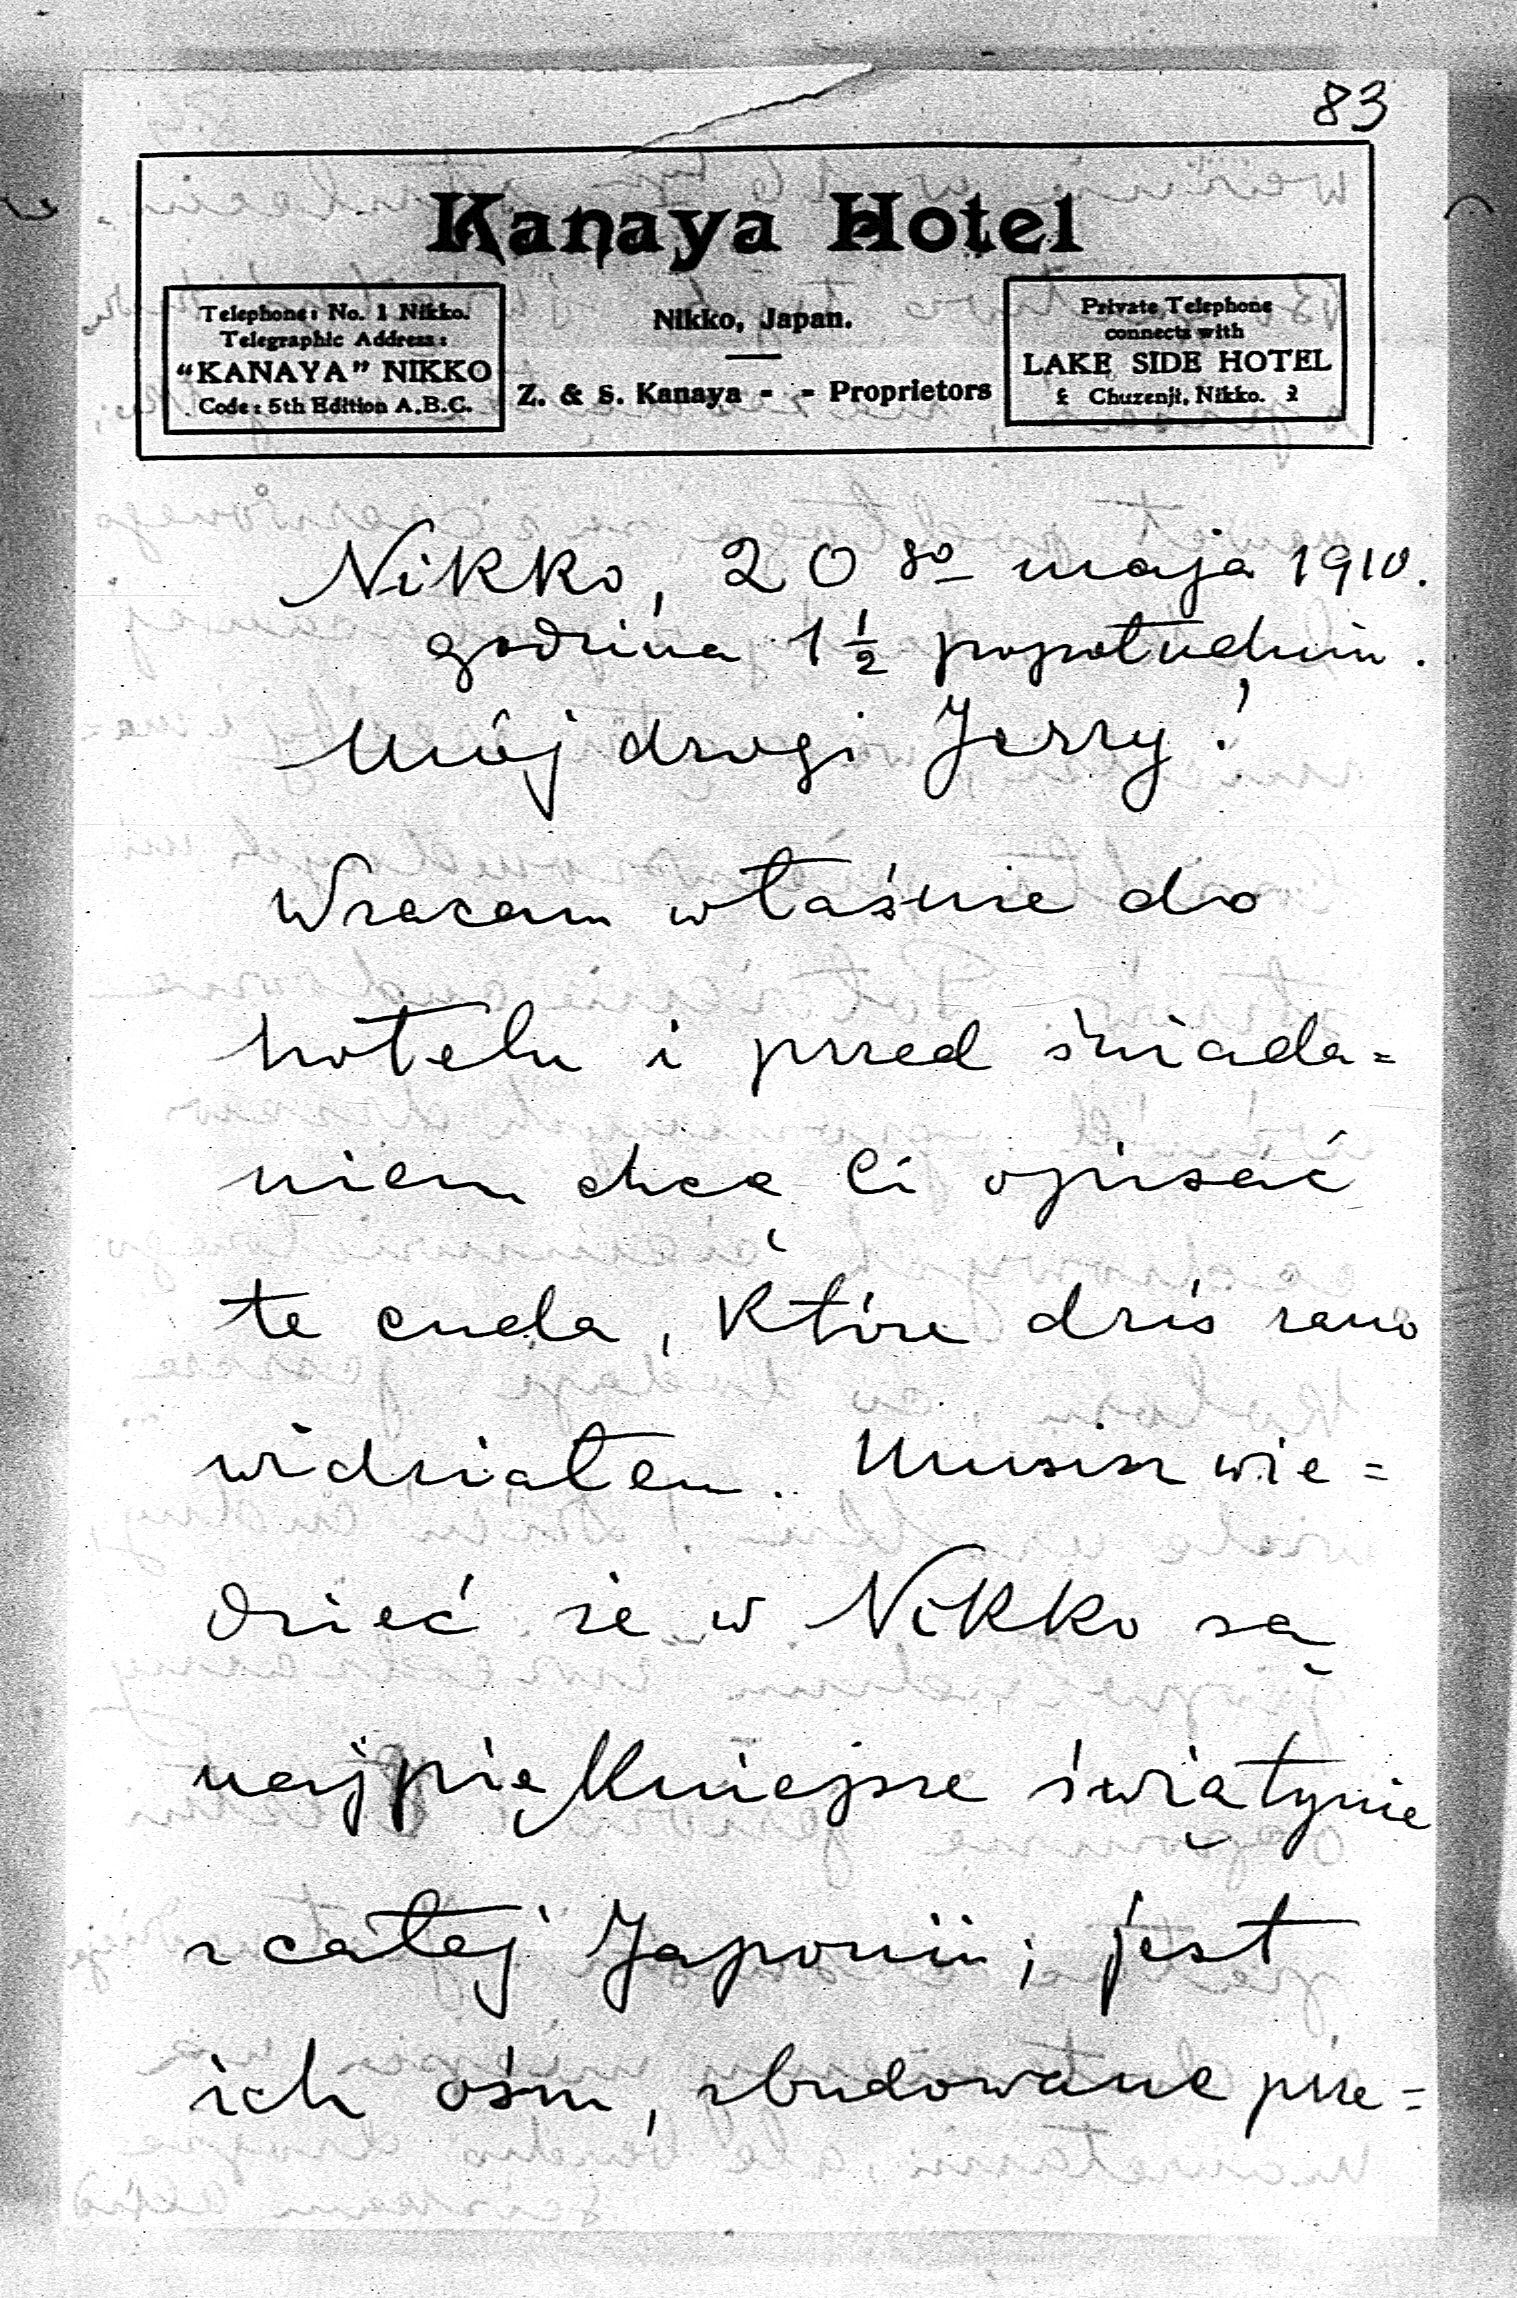 83
Kanaya Hotel
Telephone: No. 1 Nikko.
Telegraphic Address:
"KANAYA" NIKKO
Code: 5th Edition A.B.C.
Nikko, Japan.
Z. & S. Kanaya - - Proprietors
Private Telephone
connects with
LAKE SIDE HOTEL
Chuzenji, Nikko.
Nikko, 20go maja 1910.
godzina 1 1/2 popołudniu.
Mój drogi Jerzy!
Wracam właśnie do
hotelu i przed śniada=
niem chcę Ci opisać
te cuda, które dziś rano
widziałem. Musisz wie=
dzieć że w Nikko są
najpiękniejsze świątynie
z całej Japonii; jest
ich ośm, zbudowane prze=